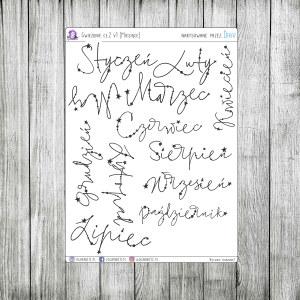 Gwiezdne cz.2 V1 [Miesiące]
narysowane przez
Styczeń
Luty
Maj
Marzec
Kwiecień
Czerwiec
Grudzień
Sierpień
Listopad
Wrzesień
Październik
Lipiec